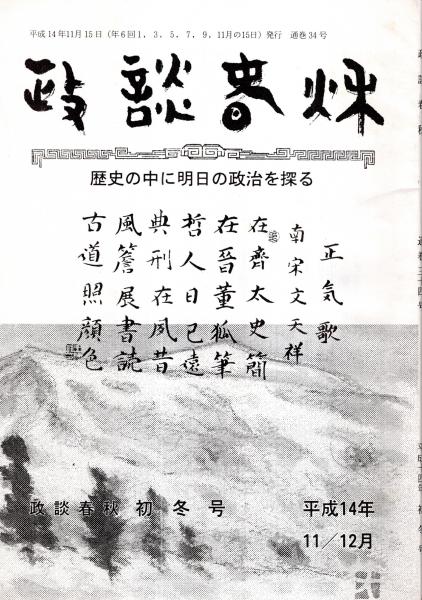 平成14年11月15日（年6回1、3、5、7、9、11月の15日）発行　通巻34号
政談春秋
歴史の中に明日の政治を探る
正気歌
南宋文天祥
在齊太史簡
在晉董狐筆
哲人日已遠
典刑在夙昔
風簷展書読
古道照顔色
政談春秋 初冬号
平成14年
11／12月